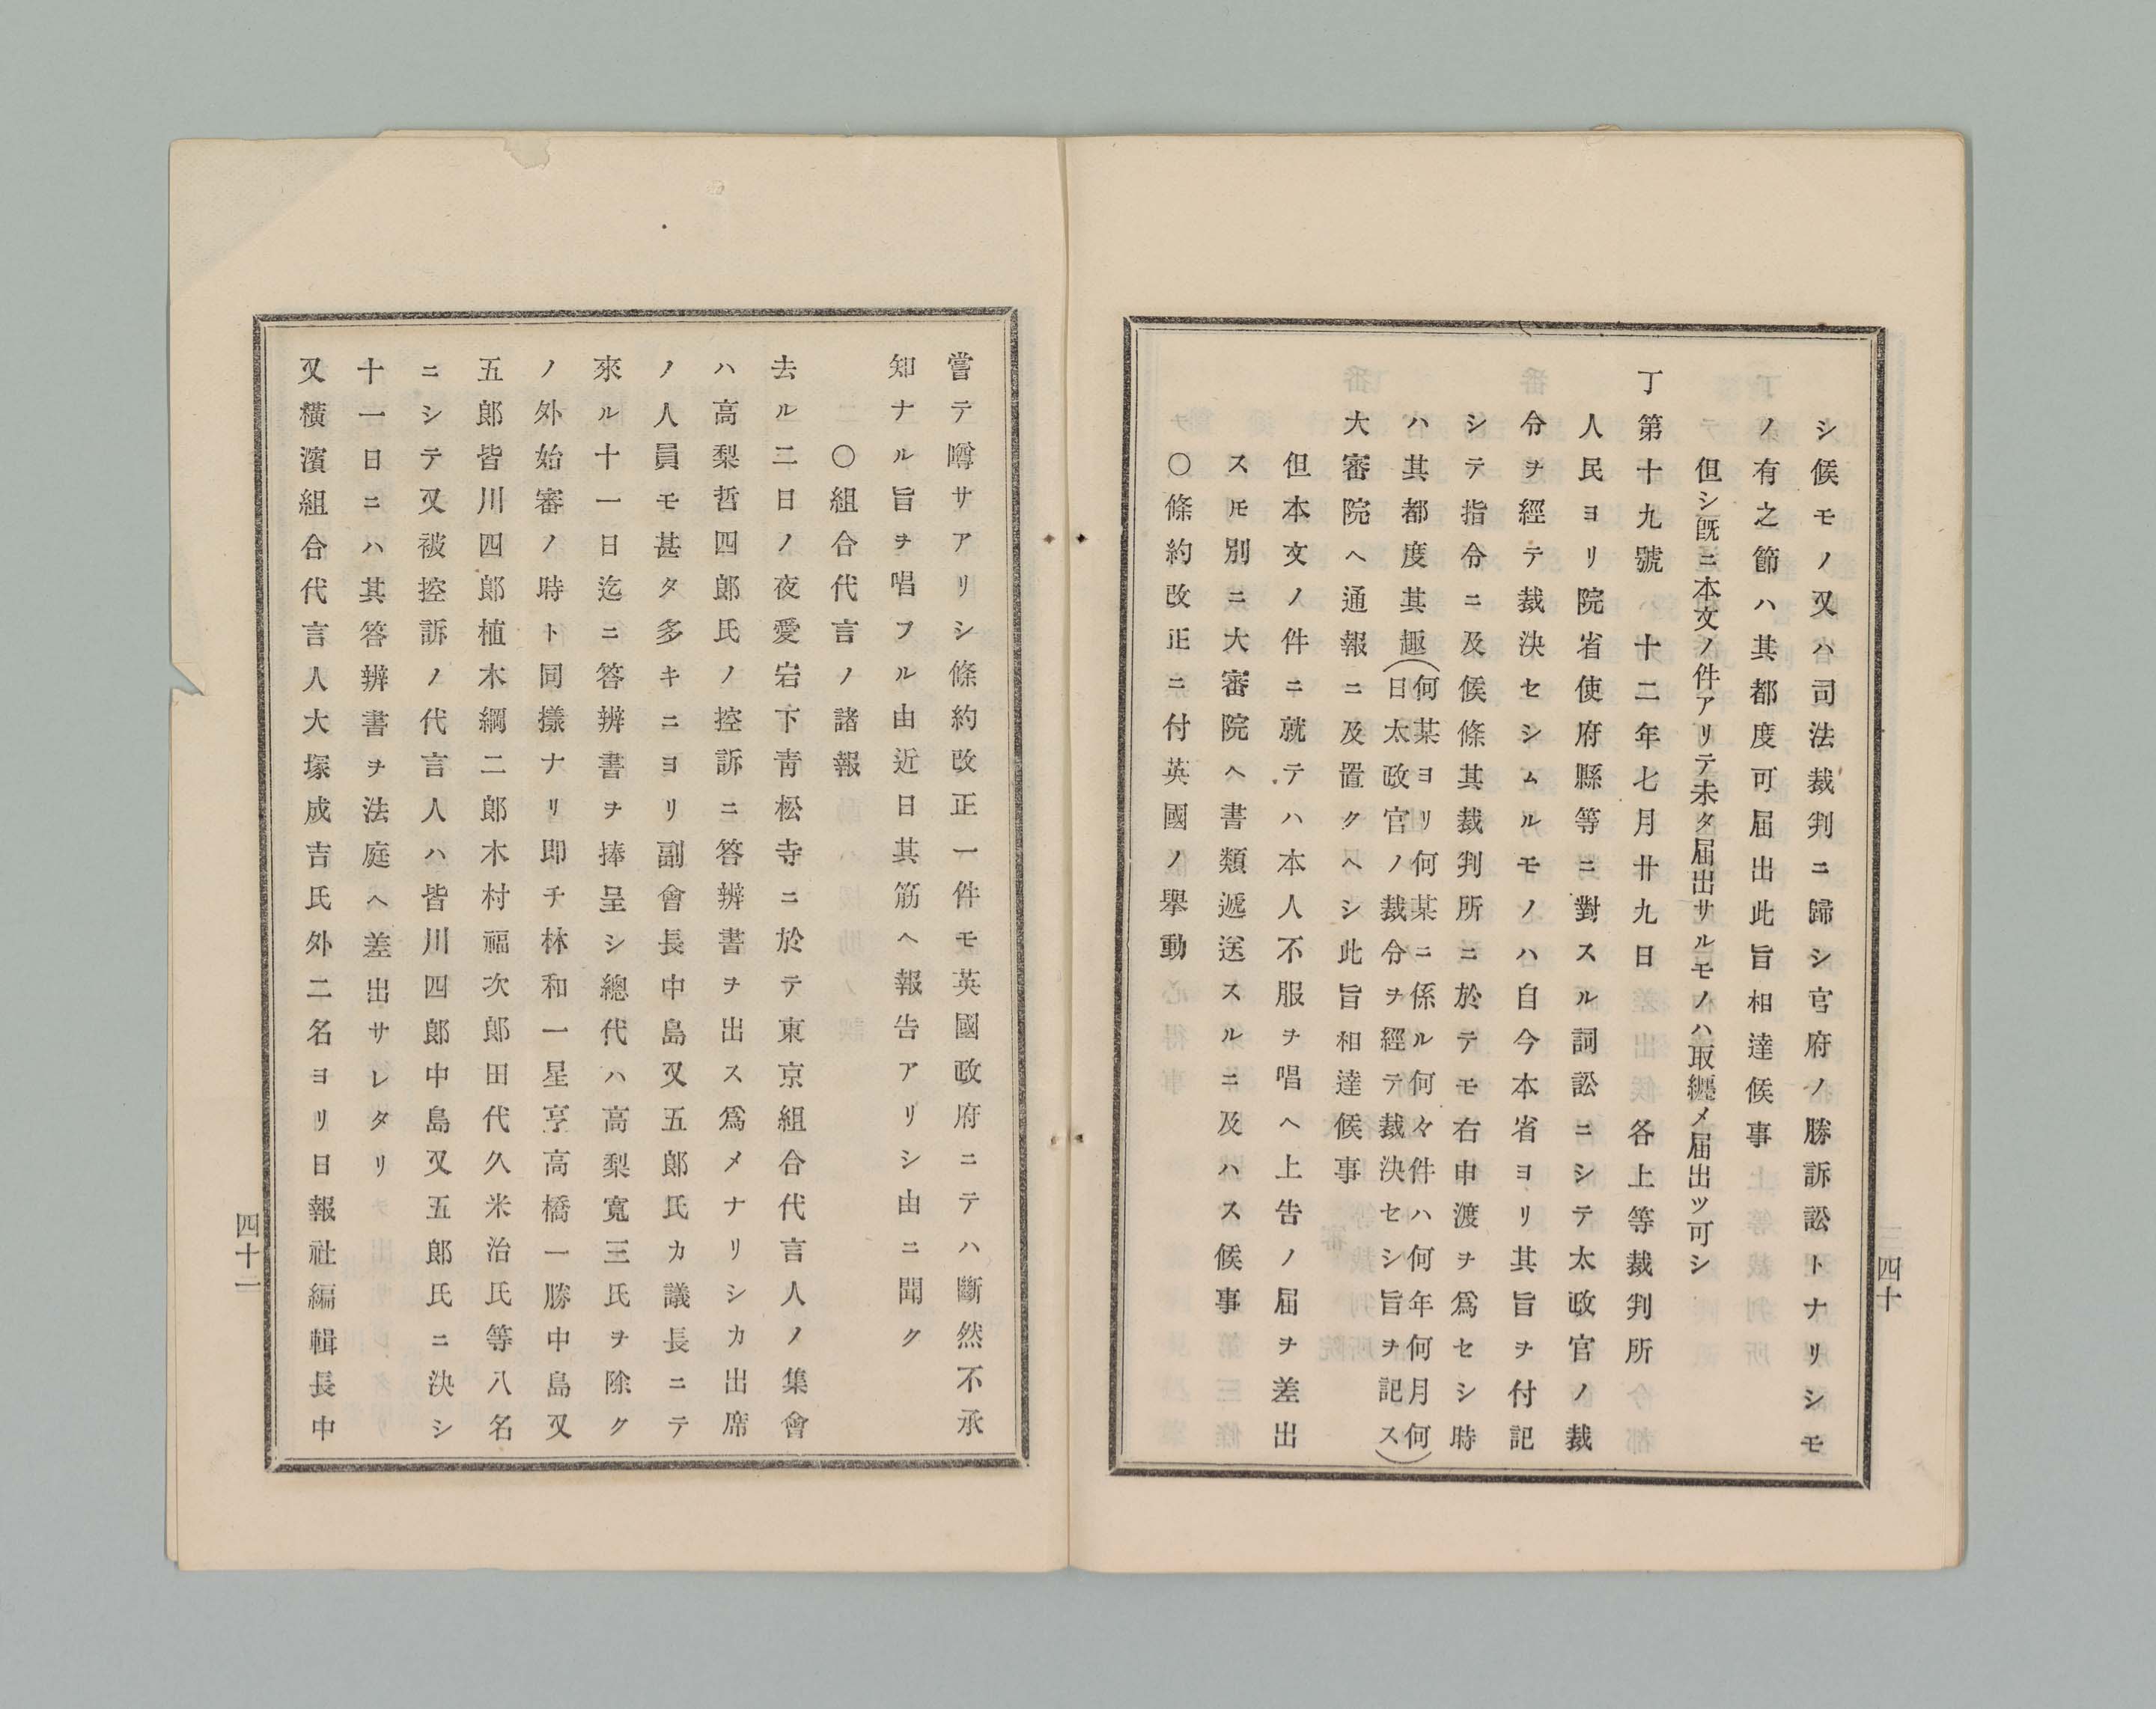 シ候モノ又ハ司法裁判ニ歸シ官府ノ勝訴訟トナリシモ
ノ有之節ハ其都度可届出此旨相達候事
但シ既ニ本文ノ件アリテ未タ届出サルモノハ取纒メ届出ツ可シ
丁第十九號 十二年七月廿九日 各上等裁判所
人民ヨリ院省使府縣等ニ對スル詞訟ニシテ太政官ノ裁
分ヲ經テ裁決セシムルモノハ自今本省ヨリ其旨ヲ付記
シテ指分ニ及候條其裁判所ニ於テモ右申渡ヲ爲セシ時
ハ其都度其趣(何某ヨリ何某ニ係ル何々件ハ何年何月何
日太政官ノ裁分ヲ經テ裁決セシ旨ヲ記ス)
大審院ヘ通報ニ及置クヘシ此旨相達候事
但本文ノ件ニ就テハ本人不服ヲ唱ヘ上告ノ届ヲ差出
スモ別ニ大審院ヘ書類遞送スルニ及ハス候事
〇條約改正ニ付英國ノ擧動
四十
嘗テ噂サアリシ條約改正一件モ英國政府ニテハ斷然不承
知ナル旨ヲ唱フル由近日其筋ヘ報告アリシ由ニ聞ク
〇組合代言ノ諸報
去ル二日ノ夜愛宕下靑松寺ニ於テ東京組合代言人ノ集會
ハ高梨哲四郎氏ノ控訴ニ答辨書ヲ出ス爲メナリシカ出席
ノ人員モ甚タ多キニヨリ副會長中島又五郎氏カ議長ニテ
來ル十一日迄ニ答辨書ヲ捧呈シ總代ハ高梨寬三氏ヲ除ク
ノ外始審ノ時ト同樣ナリ即チ林和一星亨高橋一勝中島又
五郎皆川四郎植木綱二郎木村福次郎田代久米治氏等八名
ニシテ又被控訴ノ代言人ハ皆川四郎中島又五郎氏ニ決シ
十一日ニハ其答辨書ヲ法庭ヘ差出サレタリ
又橫濱組合代言人大塚成吉氏外二名ヨリ日報社編輯長中
四十一